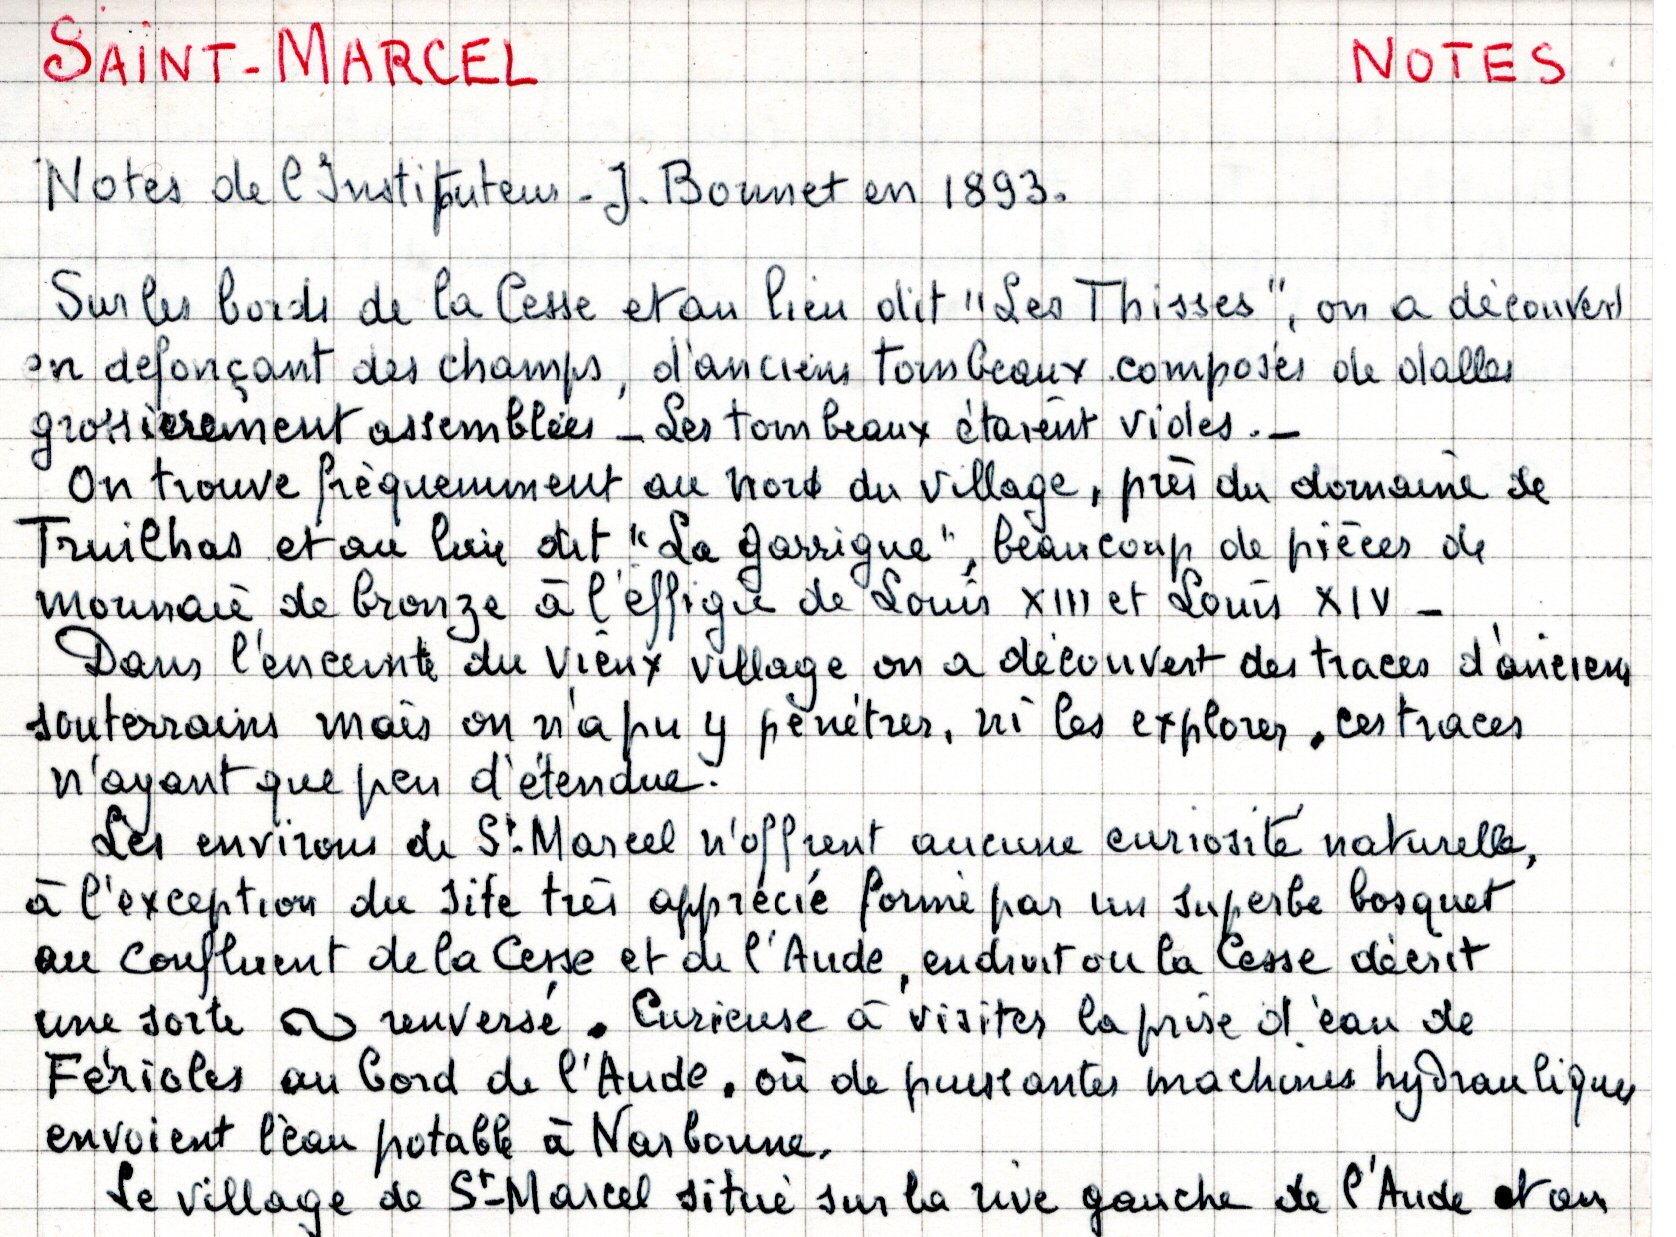 SAINT-MARCEL NOTES
Notes de l'Instituteur - J. Bonnet en 1893.
Sur les bords de la Cesse et au lieu dit "Les Thisses", on a découvert
en défonçant des champs, d'anciens tombeaux composés de dalles
grossièrement assemblées - Les tombeaux étaient vides. -
On trouve fréquemment au nord du village, près du domaine de
Truilhas et au lieu dit "La garrigue", beaucoup de pièces de
monnaie de bronze à l'éffigie de Louis XIII et Louis XIV -
Dans l'enceinte du vieux village on a découvert des traces d'anciens
souterrains mais on n'a pu y pénétrer, ni les explorer. ces traces
n'ayant que peu d'étendue.
Les environs de St-Marcel n'offrent aucune curiosité naturelle,
à l'exception du site très apprécié formé par un superbe bosquet
au confluent de la Cesse et de l'Aude, endroit ou la Cesse décrit
une sorte ∾ renversé. Curieuse à visiter la prise d'eau de
Férioles au bord de l'Aude. où de puissantes machines hydrauliques
envoient l'eau potable à Narbonne.
Le village de St-Marcel situé sur la rive gauche de l'Aude et au